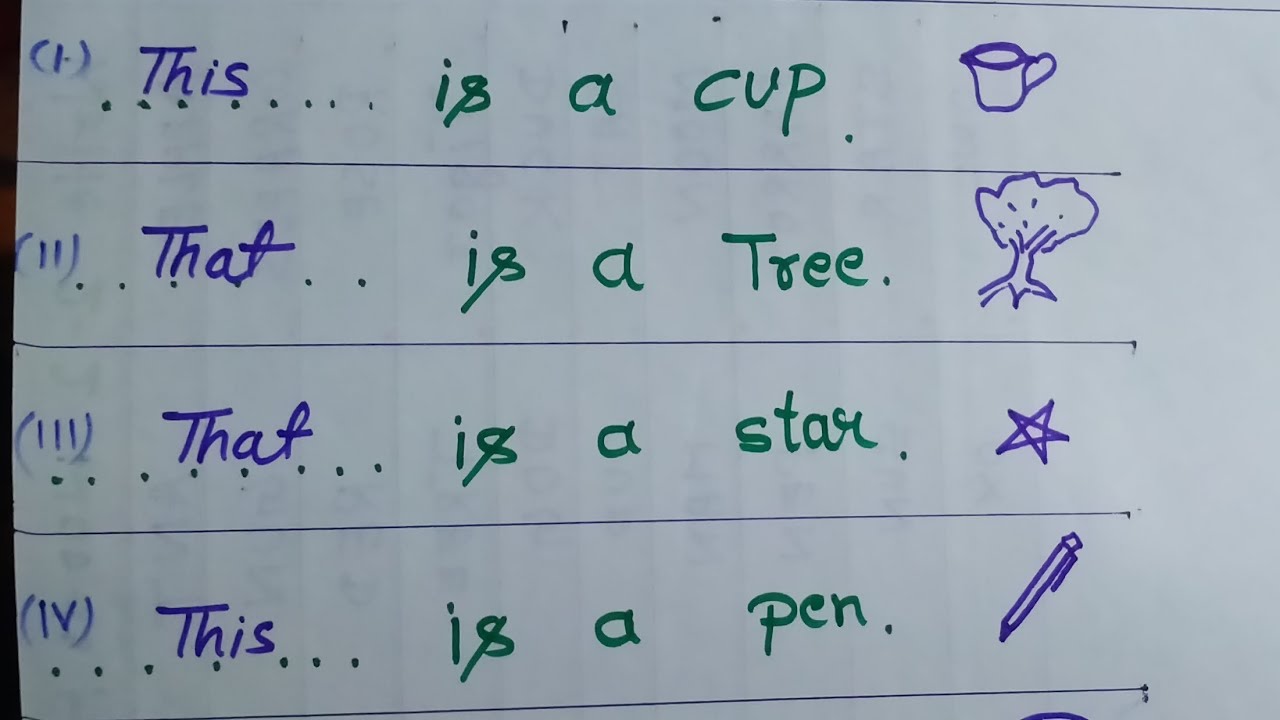 (I) This ........ is a cup.
(II) .. That .. is a Tree.
(III) That ........ is a star.
(IV) ... This ... is a pen.